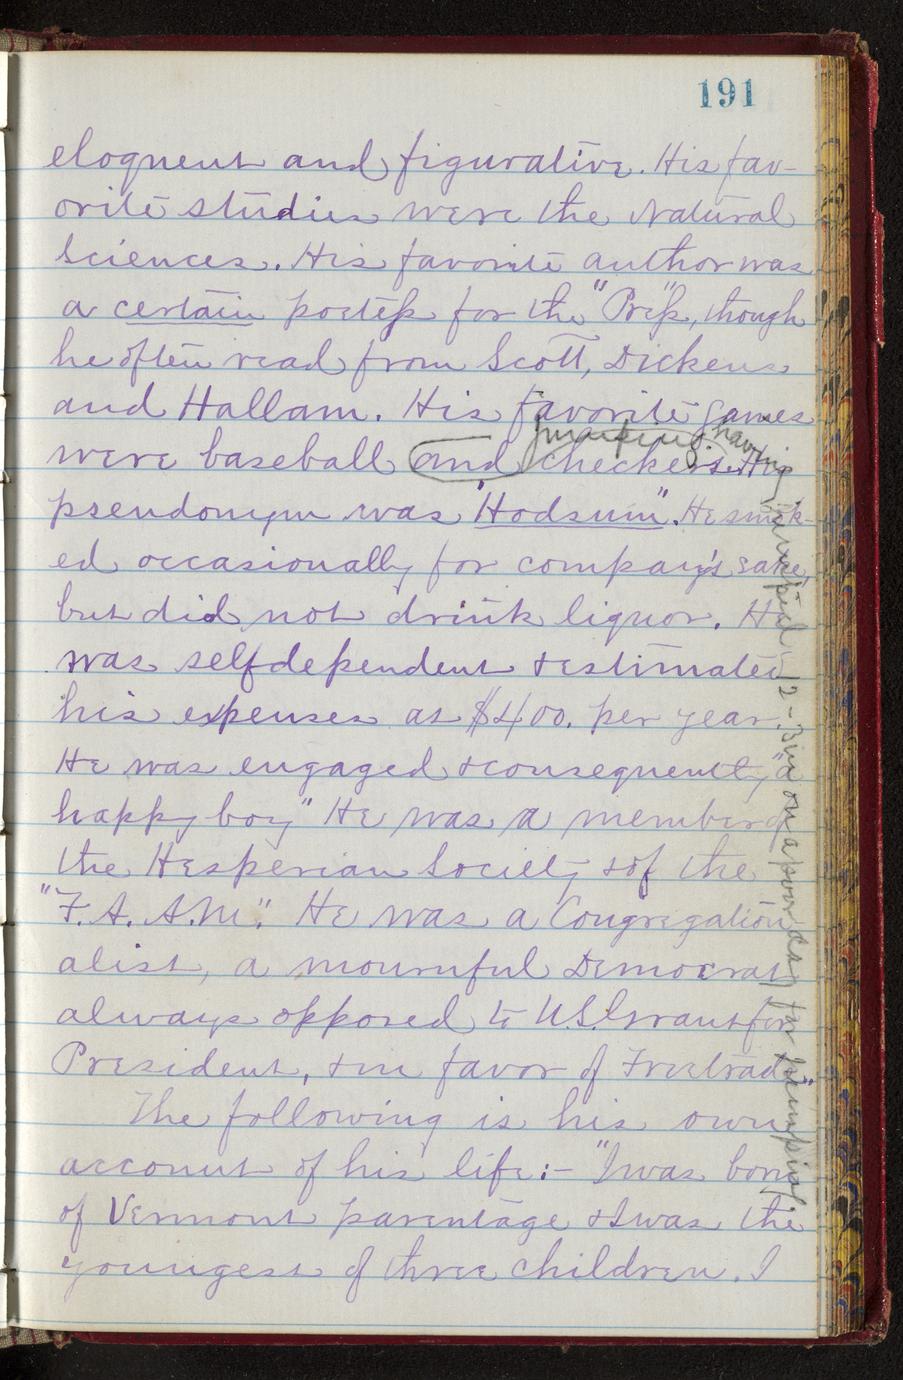 191
eloquent and figurative. His fav-
orite studies were the Natural
Sciences. His favorite author was
a certain poetess for the "Press", though
he often read from Scott, Dickens
and Hallam. His favorite games
were baseball and checkers. His
having
pseudonym was "Hodsum". He smok-
ed occasionally for company's sake,
but did not drink liquor. He
was selfdependent & estimated
his expenses at $400. per year.
He was engaged & consequently, "a
happy boy" He was a member of
the Hesperian Society & of the
"F. A. A. M." He was a Congregation
alist, a mournful Democrat
always opposed to U.S. Grant for
President, & in favor of Freetrade."
The following is his own
account of his life:- "I was born
of Vermont parentage & I was the
youngest of three children. I
12 - on a poor day for